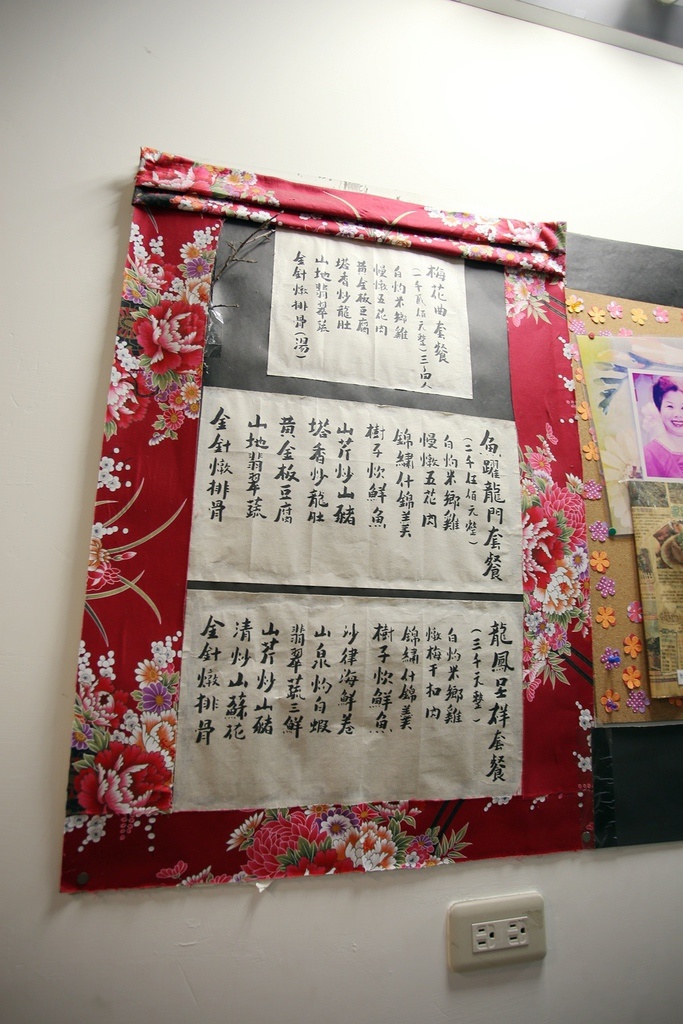 梅花曲套餐
(一千貳佰天整)三-四人
白灼米鄉雞
慢燉五花肉
黃金板豆腐
塔香炒龍肚
山地翡翠蔬
金針燉排骨(湯)
魚躍龍門套餐
(二千伍佰元整)
白灼米鄉雞
慢燉五花肉
錦繡什錦羹
樹子炊鮮魚
山芹炒山豬
塔香炒龍肚
黃金板豆腐
山地翡翠蔬
金針燉排骨
龍鳳呈祥套餐
(三千天整)
白灼米鄉雞
燉梅干扣肉
錦繡什錦羹
樹子炊鮮魚
沙律海鮮卷
山泉灼白蝦
翡翠蔬三鮮
山芹炒山豬
清炒山蘇花
金針燉排骨